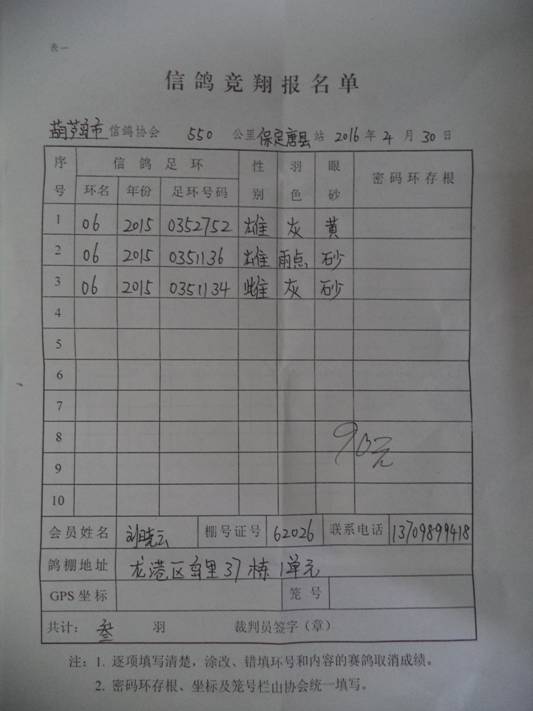 表一
信鸽竞翔报名单
葫芦岛市 信鸽协会 550 公里 保定唐县 站 2016 年 4 月 30 日
序号 信鸽足环 性别 羽色 眼砂 密码环存根
环名 年份 足环号码
1 06 2015 0352752 雄 灰 黄
2 06 2015 0351136 雄 雨点 砂
3 06 2015 0351134 雌 灰 砂
4
5
6
7
8
90元
9
10
会员姓名 刘晓云 棚号证号 62026 联系电话 13709899418
鸽棚地址 龙港区 里37栋1单元
GPS坐标 笼号
共计: 叁 羽 裁判员签字(章)
注: 1. 逐项填写清楚,涂改、错填环号和内容的赛鸽取消成绩。
2. 密码环存根、坐标及笼号栏山协会统一填写。